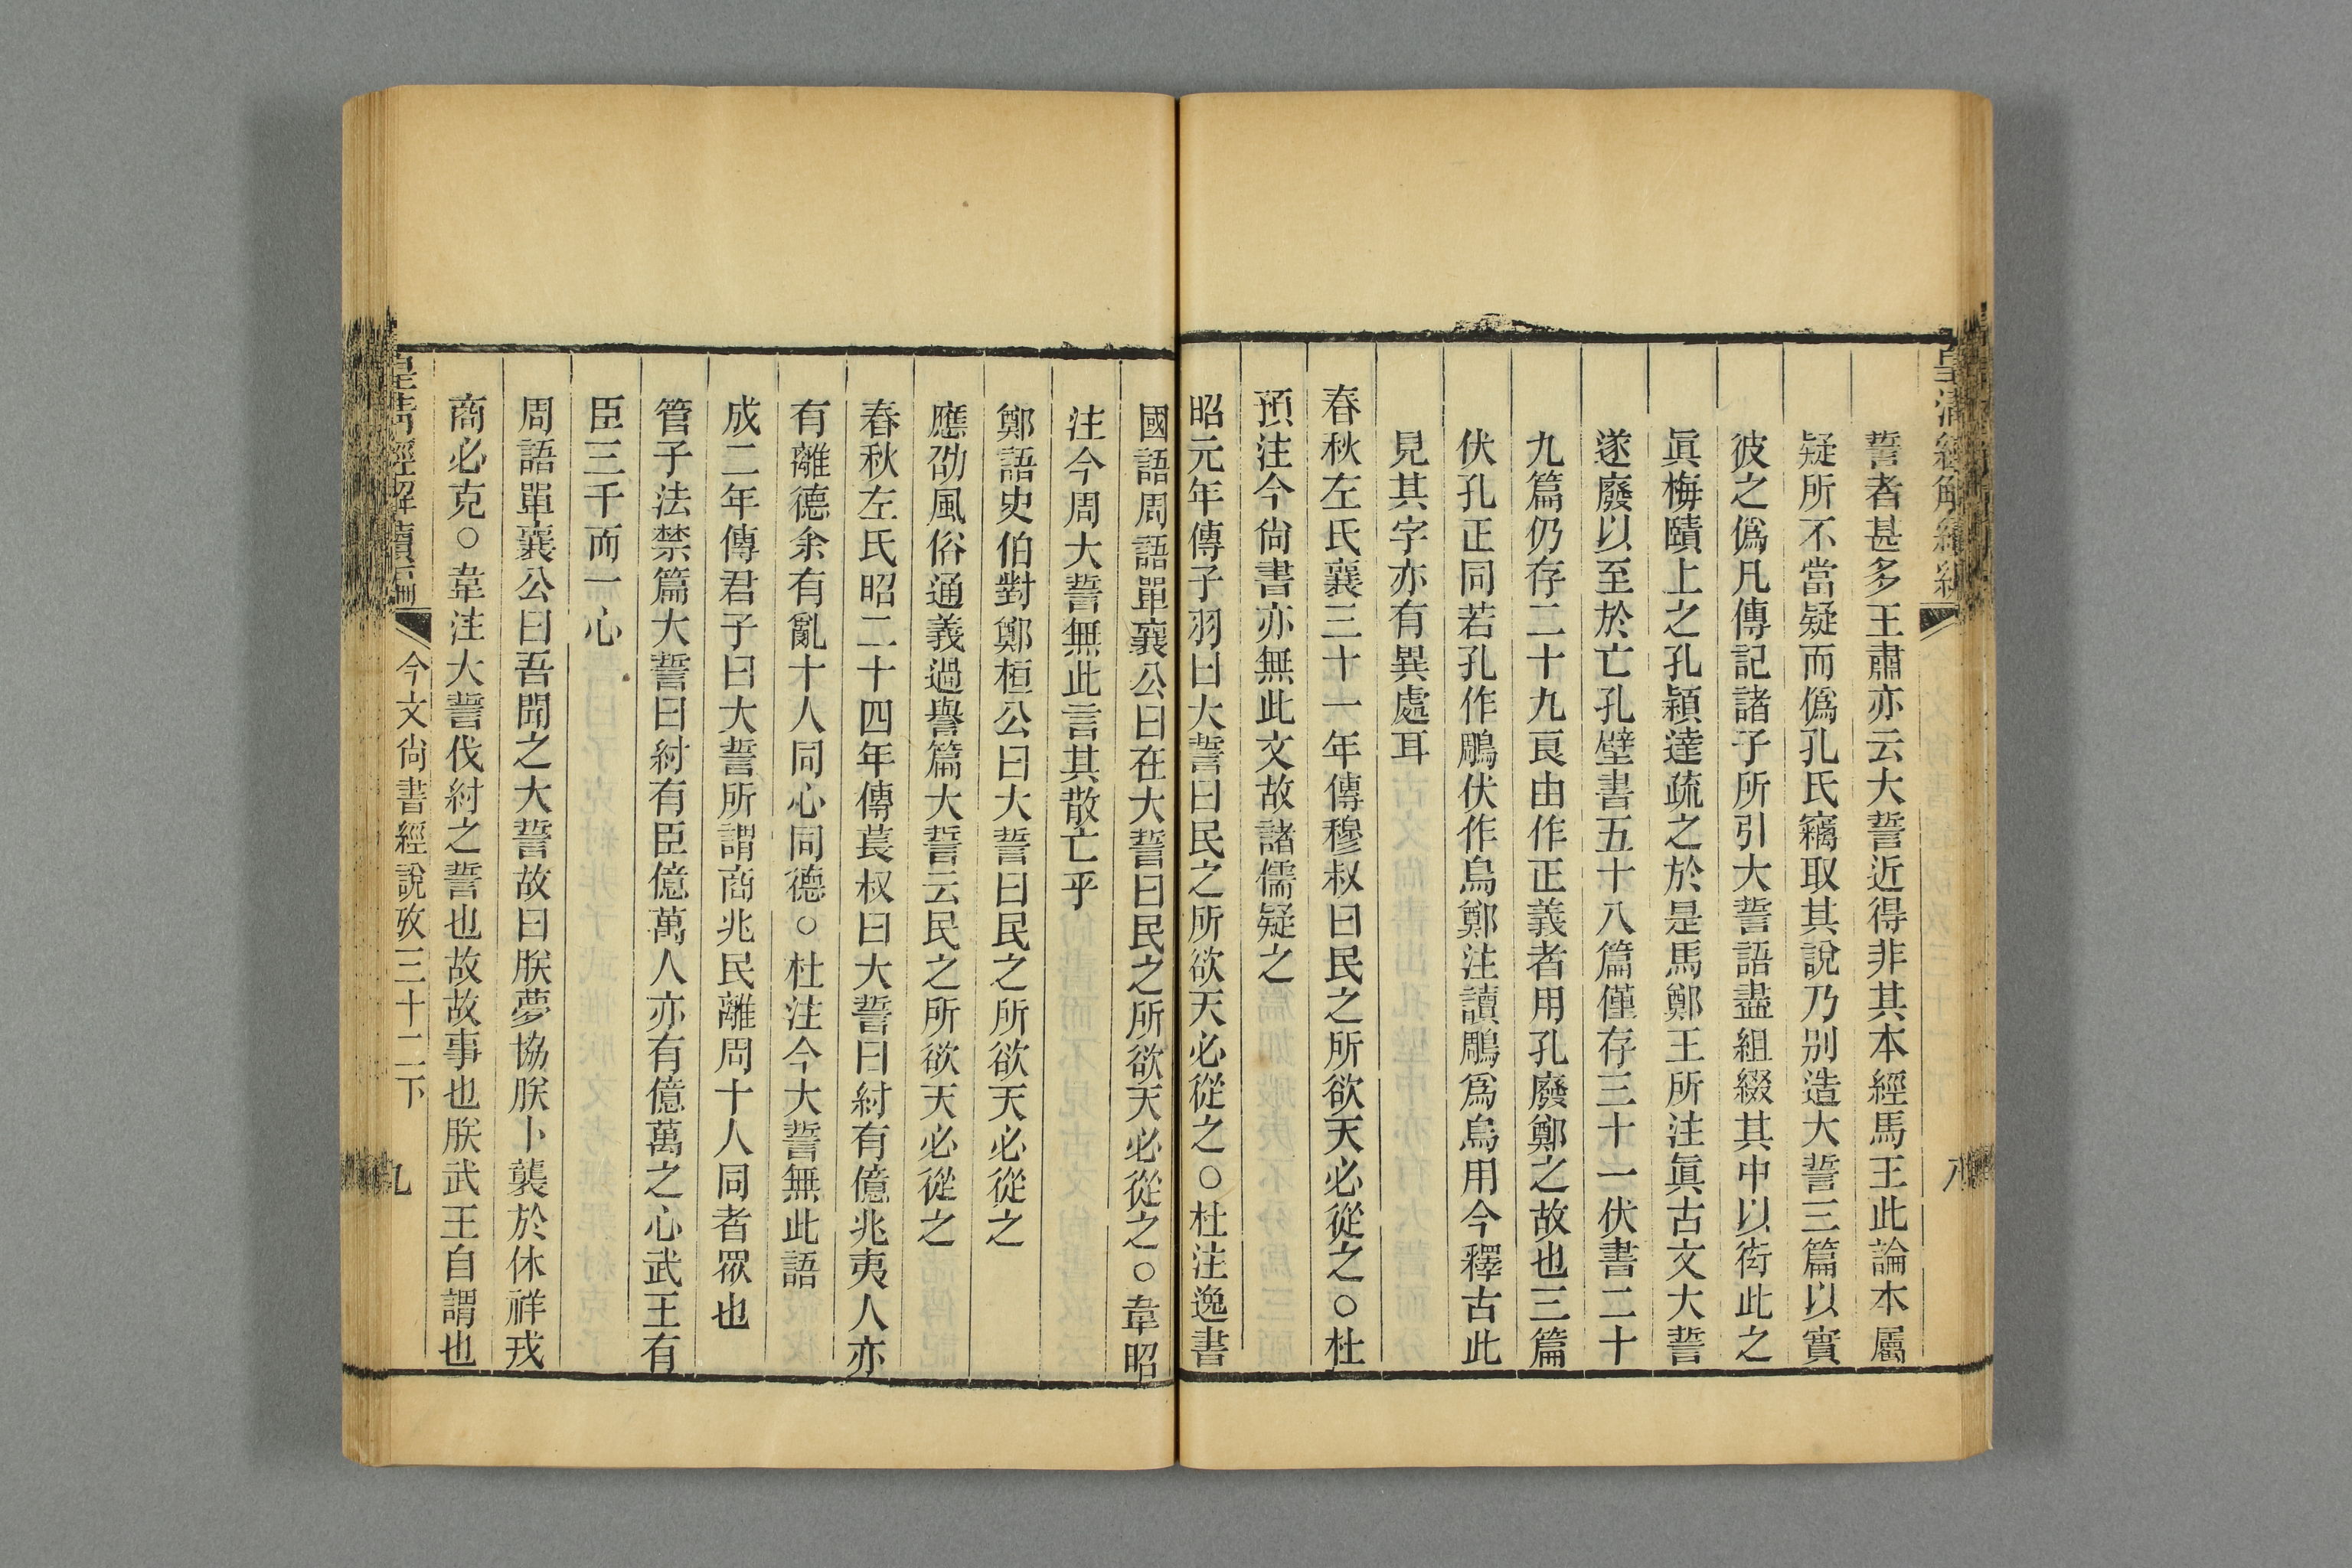 皇清經解續編
八
誓者甚多王肅亦云大誓近得非其本經馬王此論木屬
疑所不當疑而僞孔氏竊取其說乃別造大誓三篇以實
彼之僞凡傳記諸子所引大誓語盡組綴其中以衒此之
眞梅賾上之孔穎達疏之於是馬鄭王所注眞古文大誓
遂廢以至於亡孔壁書五十八篇僅存三十一伏書二十
九篇仍存二十九良由作正義者用孔廢鄭之故也三篇
伏孔正同若孔作鵰伏作烏鄭注讀鵰爲烏用今釋古此
見其字亦有異處耳
春秋左氏襄三十一年傳穆叔曰民之所欲天必從之○杜
預注今尙書亦無此文故諸儒疑之
昭元年傳子羽曰大誓曰民之所欲天必從之○杜注逸書
國語周語單襄公曰在大誓曰民之所欲天必從之○韋昭
注今周大誓無此言其散亡乎
鄭語史伯對鄭桓公曰大誓曰民之所欲天必從之
應劭風俗通義過譽篇大誓云民之所欲天必從之
春秋左氏昭二十四年傳萇叔曰大誓曰紂有億兆夷人亦
有離德余有亂十人同心同德○杜注今大誓無此語
成二年傳君子曰大誓所謂商兆民離周十人同者眾也
管子法禁篇大誓曰紂有臣億萬人亦有億萬之心武王有
臣三千而一心
周語單襄公曰吾聞之大誓故曰朕夢協朕卜襲於休祥戎
商必克○韋注大誓伐紂之誓也故故事也朕武王自謂也
皇清經解續編
今文尙書經說攷三十二下
九